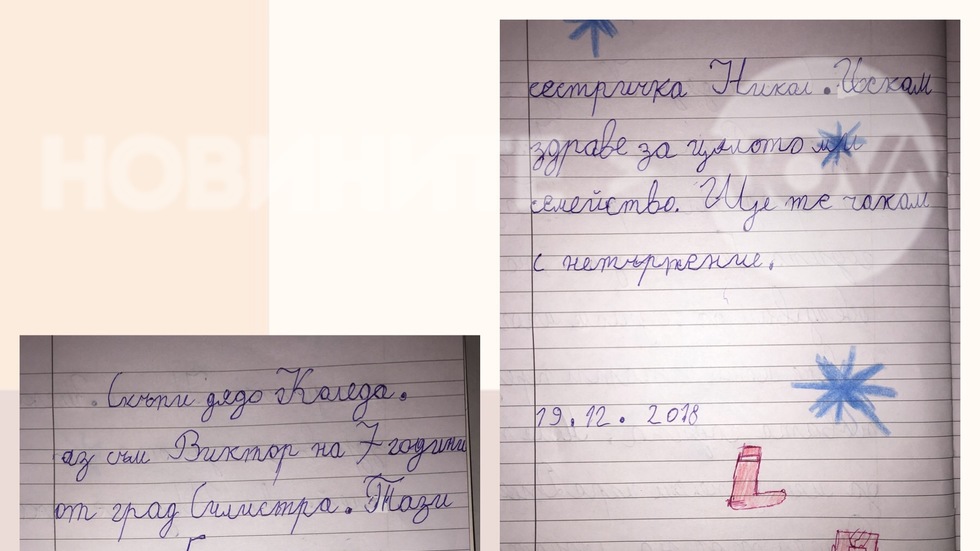 Скъпи дядо Коледа.
аз съм Виктор на 7 години
от град Силистра. Тази
сестричка Никол. Искам
здраве за цялото ми
семейство. Ще те чакам
с нетърпение.
19.12. 2018
НОВИНИТЕ
NOVA